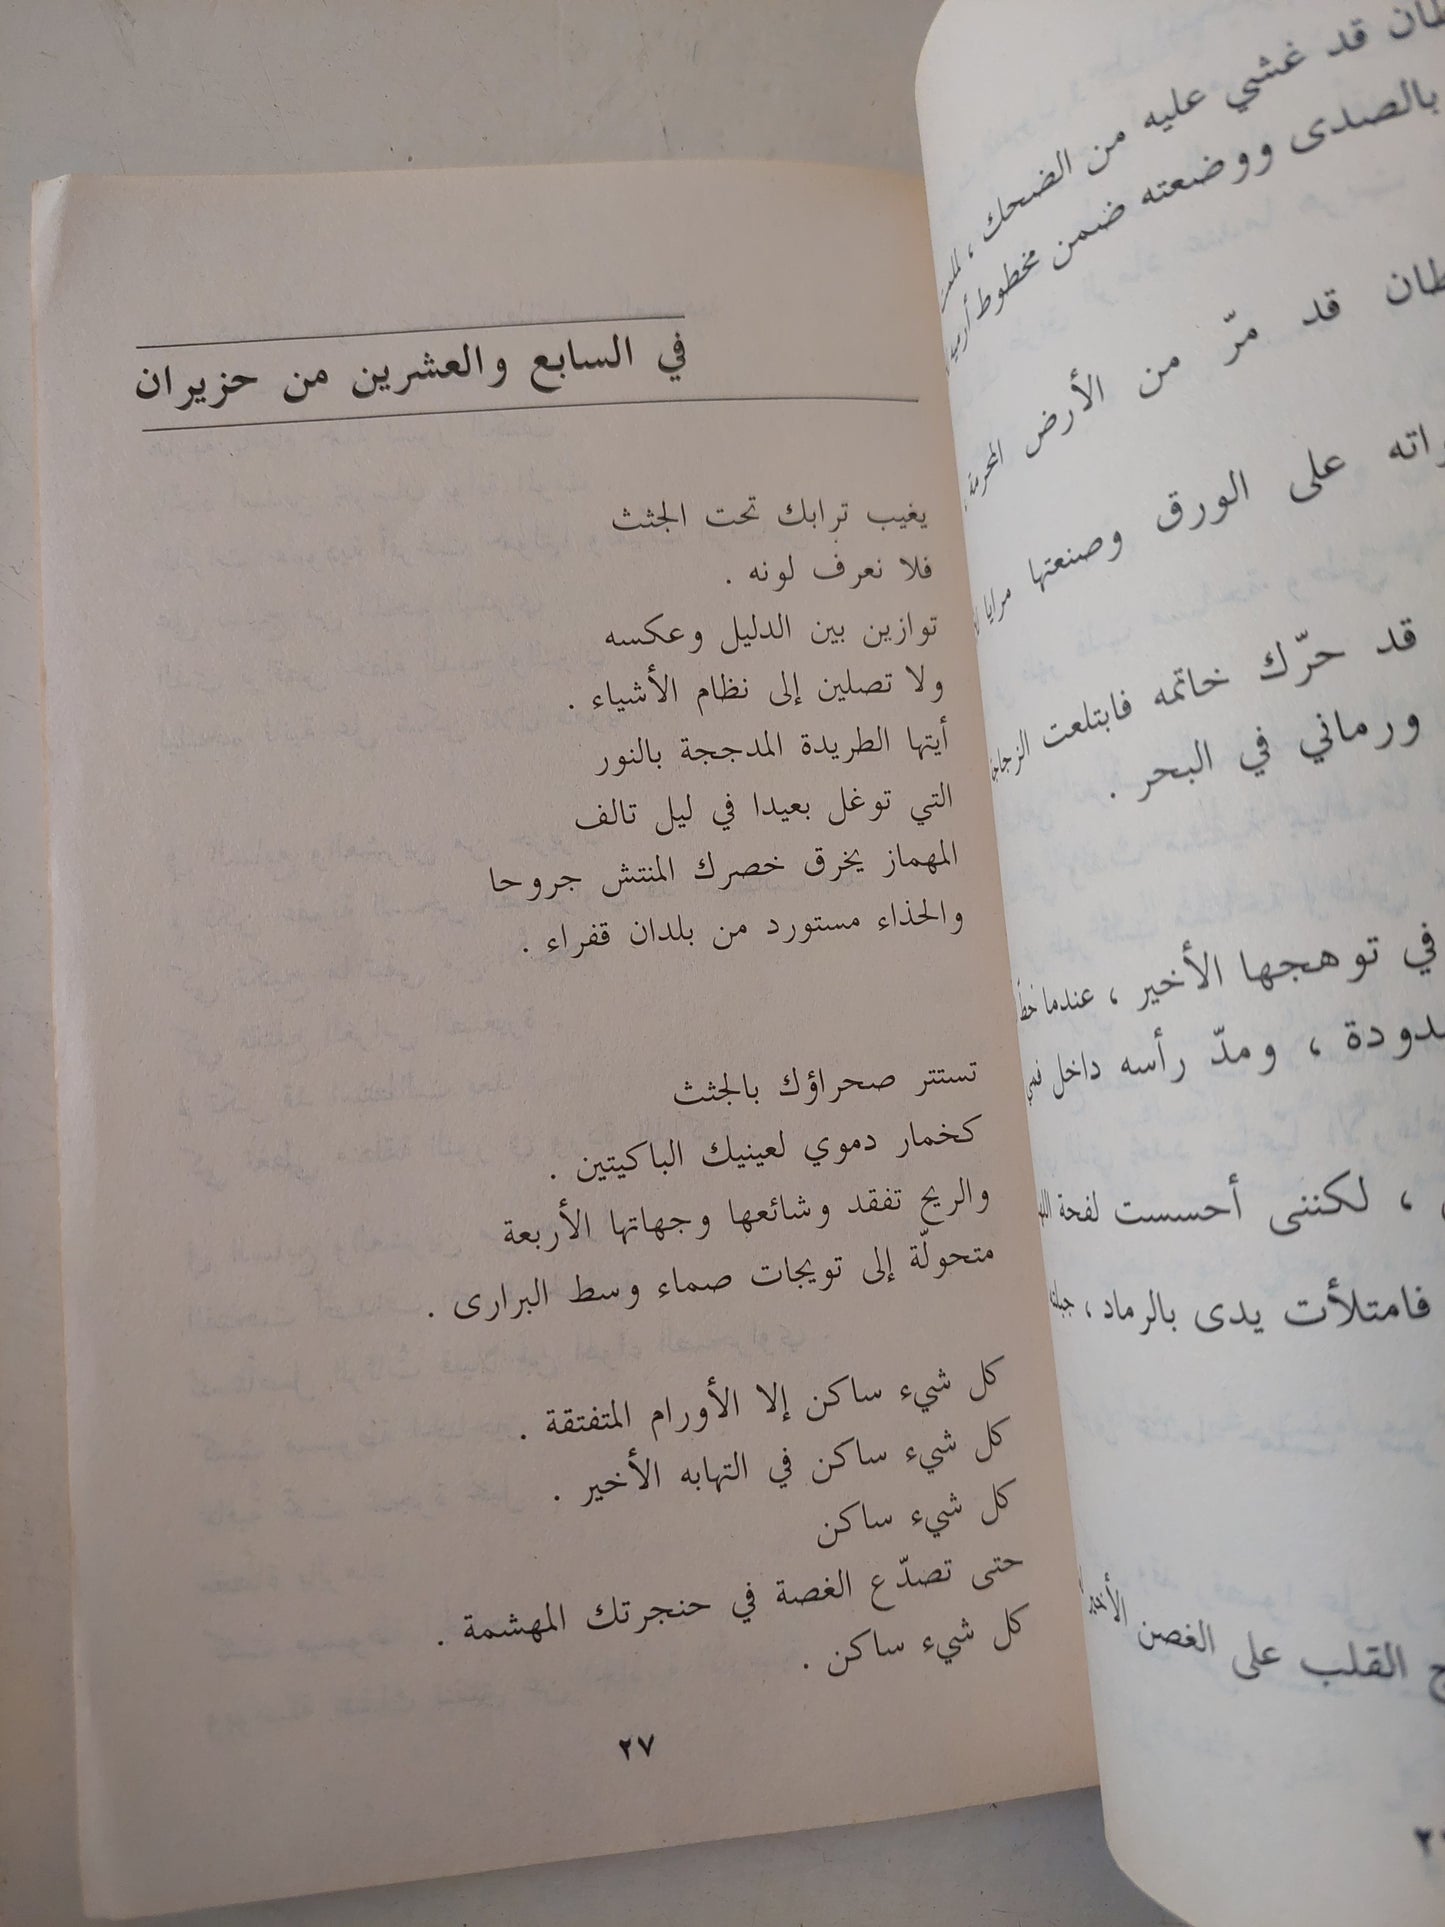 طان قد غشي عليه من الضحك ،
بالصدى ووضعته ضمن مخطوط
طان قد مرّ من الأرض المحرمة
راته على الورق وصنعتها مرايا
قد حرّك خاتمه فابتلعت
ورماني في البحر .
في توهجها الأخير ، عندما
دودة ، ومدّ رأسه داخل فمي
، لكننى أحسست لفحة
فامتلأت يدى بالرماد ،
القلب على الغصن
في السابع والعشرين من حزيران
يغيب ترابك تحت الجثث
فلا نعرف لونه .
توازين بين الدليل وعكسه
ولا تصلين إلى نظام الأشياء .
أيتها الطريدة المدججة بالنور
التي توغل بعيدا في ليل تالف
المهماز يخرق خصرك المنتش جروحا
والحذاء مستورد من بلدان قفراء .
تستتر صحراؤك بالجثث
كخمار دموي لعينيك الباكيتين .
والريح تفقد وشائعها وجهاتها الأربعة
متحولّة إلى تويجات صماء وسط البرارى .
كل شيء ساكن إلا الأورام المتفتقة .
كل شيء ساكن في التهابه الأخير .
كل شيء ساكن
حتى تصدّع الغصة في حنجرتك المهشمة .
كل شيء ساكن .
٢٧